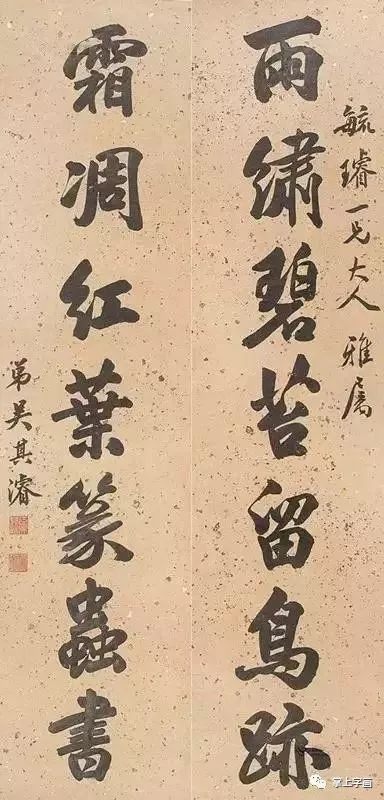 毓璿一兄大人雅属
雨繡碧苔留鳥跡
霜凋红葉篆蟲書
弟吴其濬
掌上字画